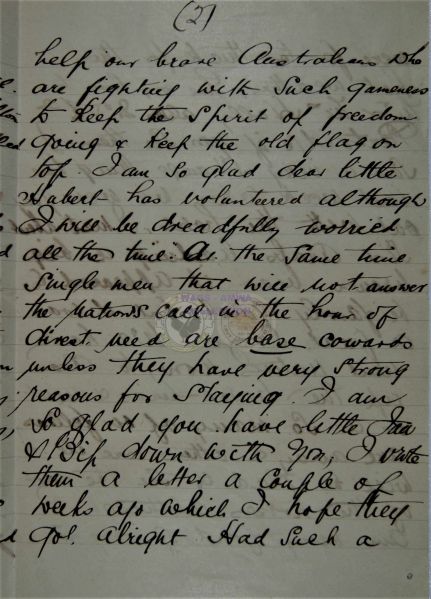 (2)
help our brave Australians who
are fighting with such gameness
to keep the spirit of freedom
going & keep the old flag on
top. I am so glad dear little
Hubert has volunteered although
I will be dreadfully worried
all the time. At the same time
single men that will not answer
the Nations call in the hour of
direst need are base cowards
unless they have very strong
reasons for staying. I am
so glad you have little
& Bip down with you, I wrote
them a letter a couple of
weeks ago which I hope they
got alright. Had such a